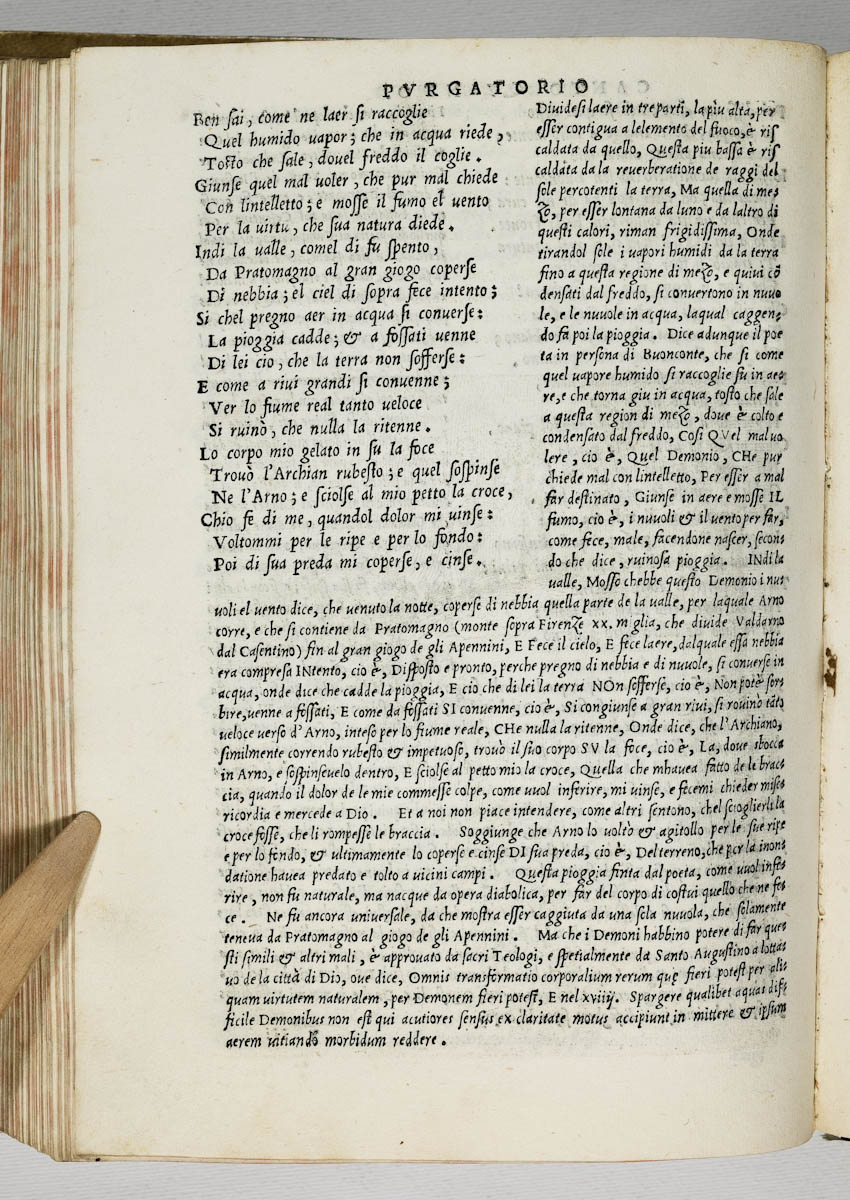 PVRGATORIO
Ben sai, come ne laer si raccoglie
Quel humido uapor; che in acqua riede,
Tosto che sale, douel freddo il coglie.
Giunse quel mal uoler, che pur mal chiede
Con lintelletto; e mosse il fumo el uento
Per la uirtu, che sua natura diede.
Indi la ualle, comel di fu spento,
Da Pratomagno al gran giogo coperse
Di nebbia; el ciel di sopra fece intento;
Si chel pregno aer in acqua si conuerse:
La pioggia cadde; & a fossati uenne
Di lei cio, che la terra non sofferse:
E come a riui grandi si conuenne;
Ver lo fiume real tanto ueloce
Si ruinò, che nulla la ritenne.
Lo corpo mio gelato in su la foce
Trouò l'Archian rubesto; e quel sospinse
Ne l'Arno; e sciolse al mio petto la croce,
Chio fe di me, quandol dolor mi uinse:
Voltommi per le ripe e per lo fondo:
Poi di sua preda mi coperse, e cinse.
Diuidesi laere in tre parti, la piu alta, per
esser contigua a lelemento del fuoco, è ris
caldata da quello, Questa piu bassa è ris
caldata da la reuerberatione de raggi del
sole percotenti la terra, Ma quella di mez
zo, per esser lontana da luno e da laltro di
questi calori, riman frigidissima, Onde
tirandol sole i uapori humidi da la terra
fino a questa regione di mezo, e quiui cō
densati dal freddo, si conuertono in nuuo
le, e le nuuole in acqua, laqual caggen,
do fa poi la pioggia. Dice adunque il poe
ta in persona di Buonconte, che si come
quel uapore humido si raccoglie su in aes
re, e che torna giu in acqua, tosto che sale
a questa region di mezo, doue è colto e
condensato dal freddo, Cosi QVel mal uo
lere, cio è, Quel Demonio, CHe pur
chiede mal con lintelletto, Per esser a mal
far destinato, Giunse in aere e mosse IL
fumo, cio è, i nuuoli & il uento per far,
come fece, male, facendone nascer, secon
do che dice, ruinosa pioggia. INdi la
ualle, Mosso chebbe questo Demonio i nus
uoli el uento dice, che uenuto la notte, coperse di nebbia quella parte de la ualle, per laquale Arno
corre, e che si contiene da Pratomagno (monte sopra Firenze xx. miglia, che diuide Valdarno
dal Casentino) fin al gran giogo de gli Apennini, E Fece il cielo, E fece laere, dalquale essa nebbia
era compresa INtento, cio è, Disposto e pronto, perche pregno di nebbia e di nuuole, si conuerse in
acqua, onde dice che cadde la pioggia, E cio che di lei la terra NOn sofferse, cio è, Non potè sors
bire, uenne a fossati, E come da fossati SI conuenne, cio è, Si congiunse a gran riui, si rouinò tāto
ueloce uerso d'Arno, inteso per lo fiume reale, CHe nulla la ritenne, Onde dice, che l'Archiano,
similmente correndo rubesto & impetuoso, trouò il suo corpo SV la foce, cio è, La, doue sbocca
in Arno, e sospinseuelo dentro, E sciolse al petto mio la croce, Quella che mhauea fatto de le brac
cia, quando il dolor de le mie commesse colpe, come uuol inferire, mi uinse, e fecemi chieder mises
ricordia e mercede a Dio. Et a noi non piace intendere, come altri sentono, chel sciogliersi la
croce fosse, che li rompesse le braccia. Soggiunge che Arno lo uoltò & agitollo per le sue ripe
e per lo fondo, & ultimamente lo coperse e cinse DI sua preda, cio è, Del terreno, che per la inons
datione hauea predato e tolto a uicini campi. Questa pioggia finta dal poeta, come uuol infes
rire, non fu naturale, ma nacque da opera diabolica, per far del corpo di costui quello che ne fe
ce. Ne fu ancora uniuersale, da che mostra esser caggiuta da una sola nuuola, che solamente
teneua da Pratomagno al giogo de gli Apennini. Ma che i Demoni habbino potere di far ques
sti simili & altri mali, è approuato da sacri Teologi, e spetialmente da Santo Augustino a lottas
uo de la città di Dio, oue dice, Omnis transformatio corporalium rerum quę fieri potest per alis
quam uirtutem naturalem, per Demonem fieri potest, E nel xviiij. Spargere qualibet aquas dif
ficile Demonibus non est qui acutiores sensus ex claritate motus accipiunt in mittere & ipsum
aerem uitiando morbidum reddere.